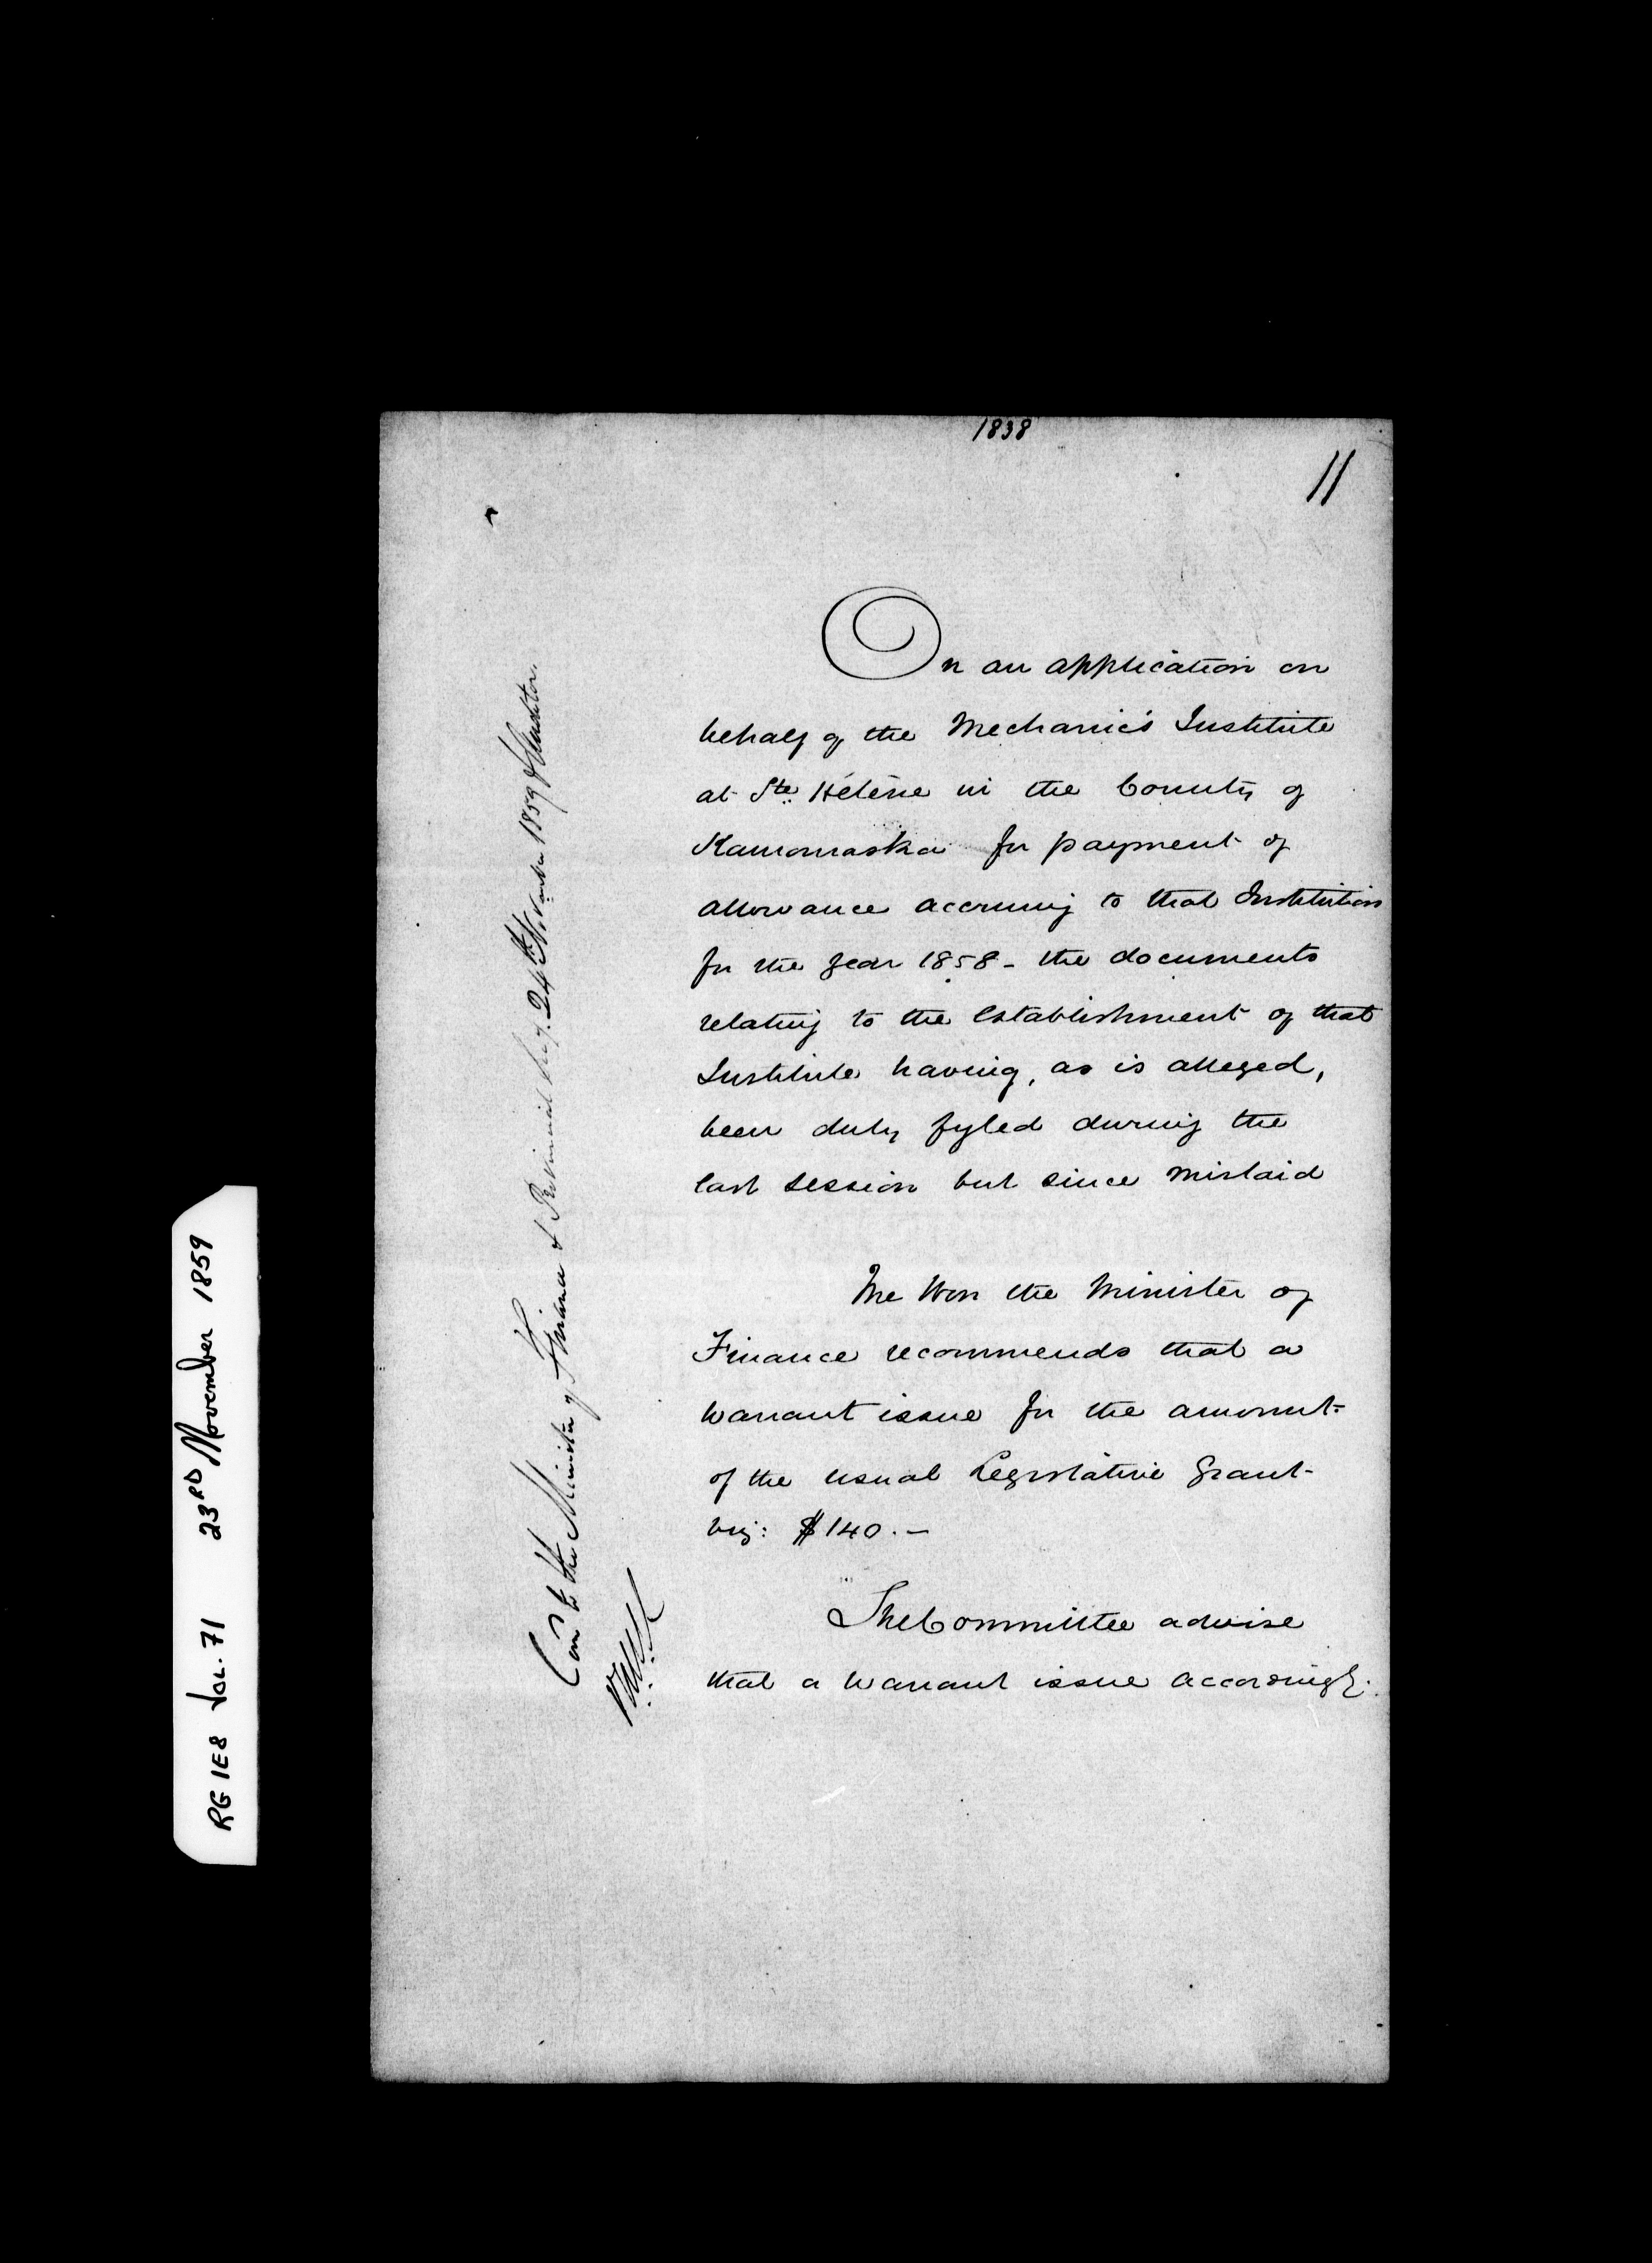 1838
11
On an application on
behalf of the Mechanic's Institute
at Ste. Hélène in the County of
Kamouraska for payment of
allowance accruing to that Institution
for the year 1858 - the documents
relating to the establishment of that
Institute having, as is alleged,
been duly fyled during the
last session but since mislaid
The Hon the Minister of
Finance recommends that a
warrant issue for the amount
of the usual Legislative Grant
viz: $140.-
The Committee advise
that a warrant issue accordingly.
Comd to the Minister of Finance & Provincial Secy. 24th November 1859 & Auditor.
RG 1E8 Vol. 71 23RD November 1859